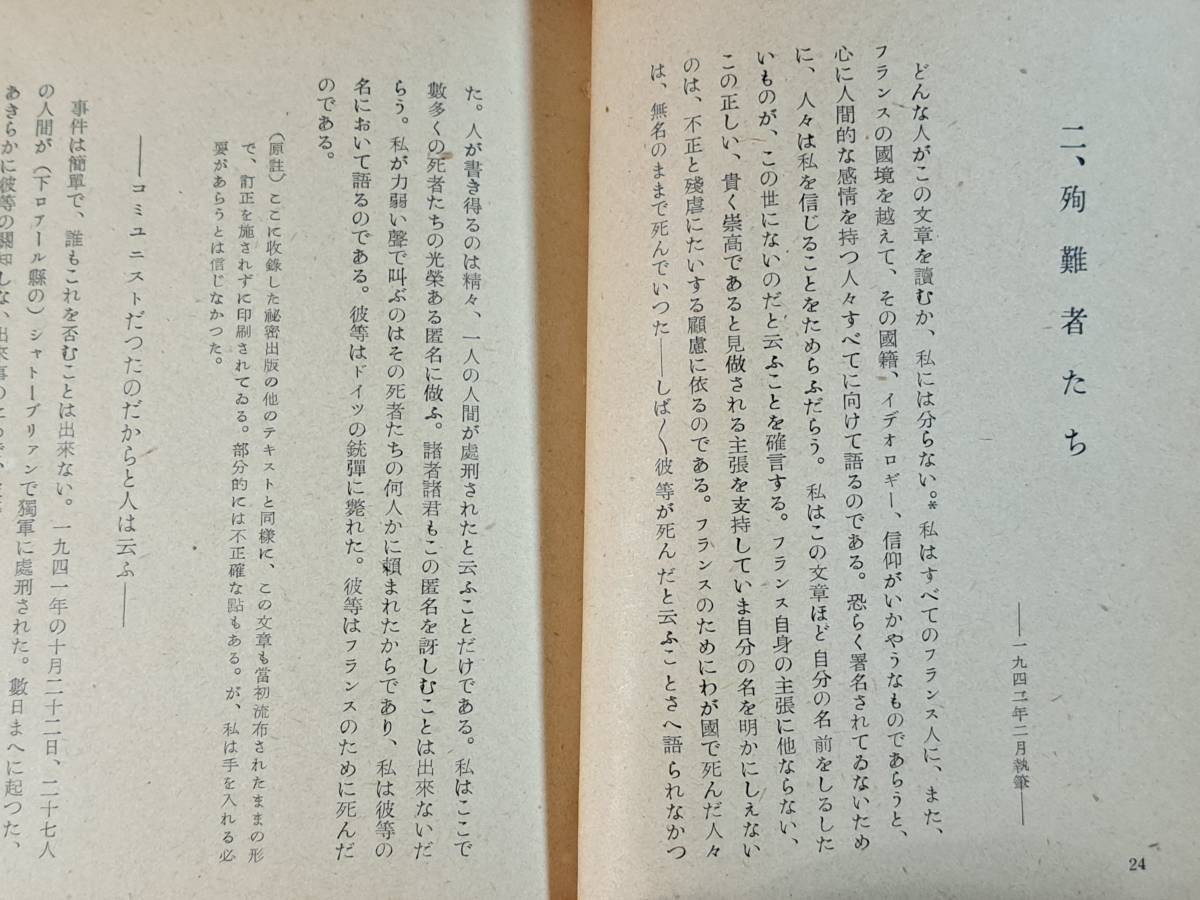 二、殉難者たち
――一九四二年二月執筆――
どんな人がこの文章を讀むか、私には分らない。*私はすべてのフランス人に、また、
フランスの國境を越えて、その國籍、イデオロギー、信仰がいかやうなものであらうと、
心に人間的な感情を持つ人々すべてに向けて語るのである。恐らく署名されてゐないため
に、人々は私を信じることをためらふだらう。私はこの文章ほど自分の名前をしるした
いものが、この世にないのだと云ふことを確言する。フランス自身の主張に他ならない、
この正しい、貴く崇高であると見做される主張を支持していま自分の名を明かにしえない
のは、不正と殘虐にたいする顧慮に依るのである。フランスのためにわが國で死んだ人々
は、無名のままで死んでいつた――しば〱彼等が死んだと云ふことさへ語られなかつ
24
た。人が書き得るのは精々、一人の人間が處刑されたと云ふことだけである。私はここで
數多くの死者たちの光榮ある匿名に做ふ。諸者諸君もこの匿名を訝しむことは出來ないだ
らう。私が力弱い聲で叫ぶのはその死者たちの何人かに賴まれたからであり、私は彼等の
名において語るのである。彼等はドイツの銃彈に斃れた。彼等はフランスのために死んだ
のである。
(原註)ここに收錄した祕密出版の他のテキストと同樣に、この文章も當初流布されたままの形
で、訂正を施されずに印刷されてゐる。部分的には不正確な點もある。が、私は手を入れる必
要があらうとは信じなかつた。
――コミユニストだつたのだからと人は云ふ――
事件は簡單で、誰もこれを否むことは出來ない。一九四一年の十月二十二日、二十七人
の人間が(下ロアール縣の)シャトーブリアンで獨軍に處刑された。數日まへに起つた、
あきらかに彼等の關知しない出來事の